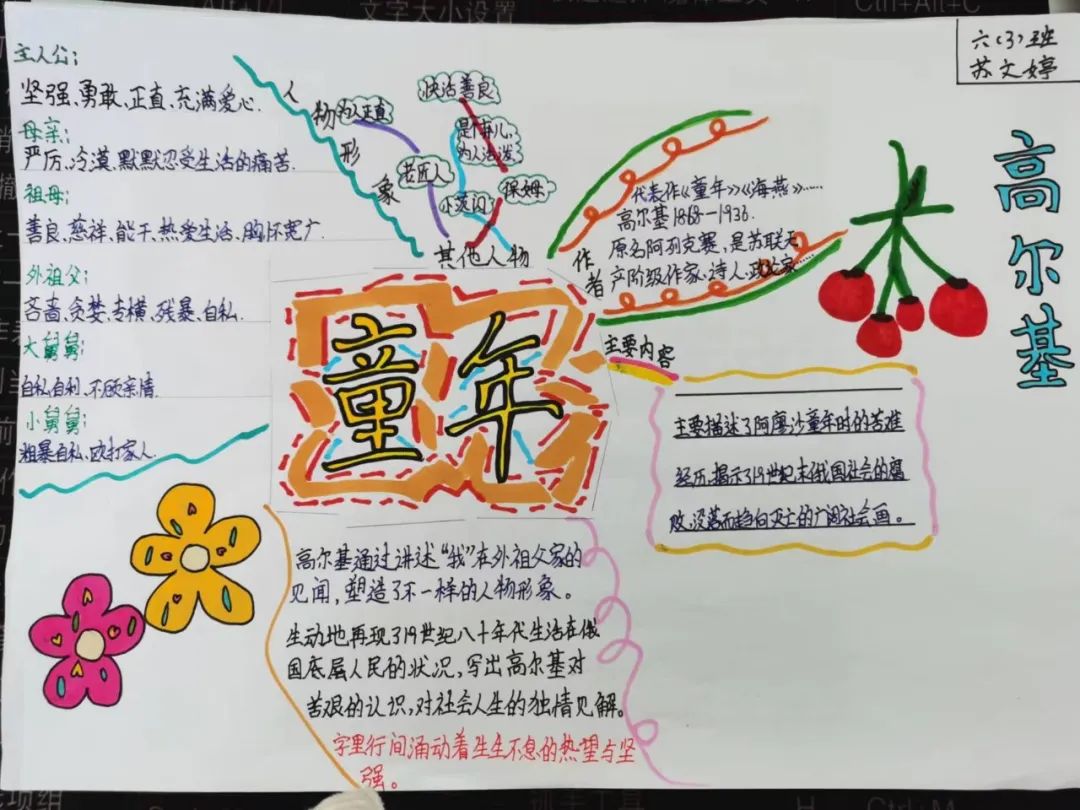 文字大小设置
Ctrl+Alt+C
六(3)班
苏文婷
高尔基
主人公:
坚强、勇敢、正直、充满爱心.
母亲:
严厉、冷漠、默默忍受生活的痛苦.
祖母:
善良、慈祥、能干、热爱生活、胸怀宽广
外祖父:
吝啬、贪婪、专横、残暴、自私.
大舅舅:
自私自利、不顾亲情.
小舅舅:
粗暴自私、殴打家人.
人物形象
为人正直
老匠人
快活善良
是个弃儿,
为人活泼
小茨冈
保姆
其他人物
童年
作者
代表作《童年》《海燕》……
高尔基1868—1936.
原名阿列克赛,是苏联无
产阶级作家、诗人、政论家……
主要内容
主要描述了阿廖沙童年时的苦难
经历,揭示了19世纪末俄国社会的腐
败、没落而趋向灭亡的广阔社会画。
高尔基通过讲述“我”在外祖父家的
见闻,塑造了不一样的人物形象。
生动地再现了19世纪八十年代生活在俄
国底层人民的状况,写出高尔基对
苦艰的认识,对社会人生的独情见解。
字里行间涌动着生生不息的热望与坚
强。